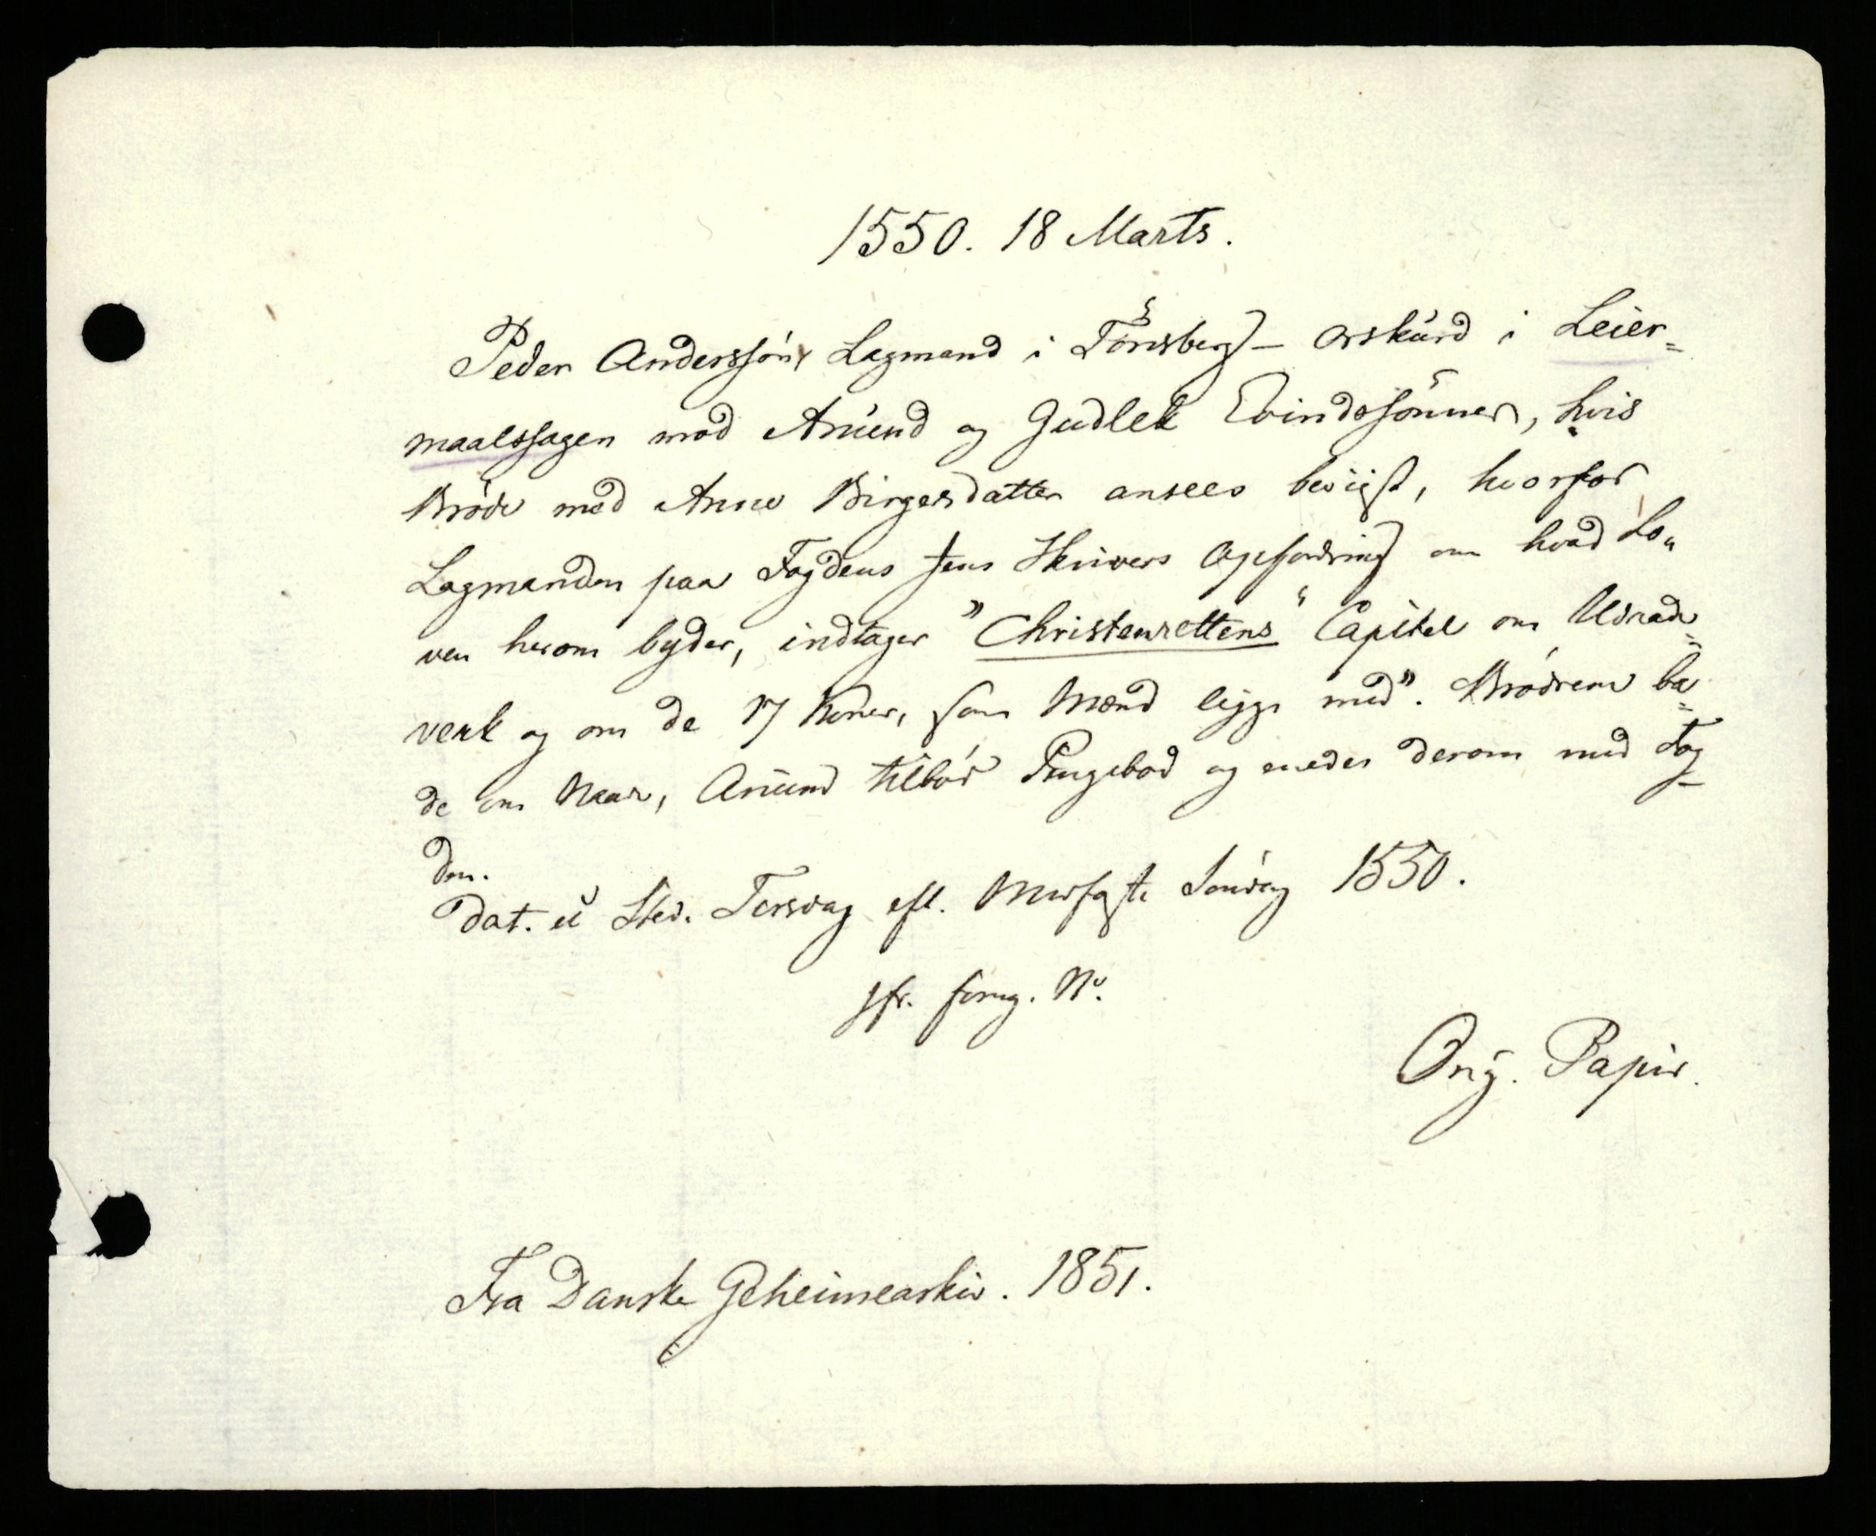 1550. 18 Marts.
Peder Anderssöns Lagmand i Tönsberg - orskurd i Leier=
maalssagen mod Amund og Gudlek Evindssönner, hvis
Bröde med Anne Birgersdatter ansees beviist, hvorfor
Lagmanden paa Fogdens Jens Skrivers Opfordring om hvad Lo=
ven herom byder, indtager "Christenrettens" Capitel om Udaade=
verk og om de 17 Koner, som Mænd ligge med". Brödrene ba=
de om Naade, Amund tilböd Pengebod og enedes derom med Fog=
den.
Dat. u Sted. Torsdag eft. Midfaste Söndag 1550.
Jfr. forrg. No.
Orig. Papir.
Fra Danske Geheimearkiv. 1851.